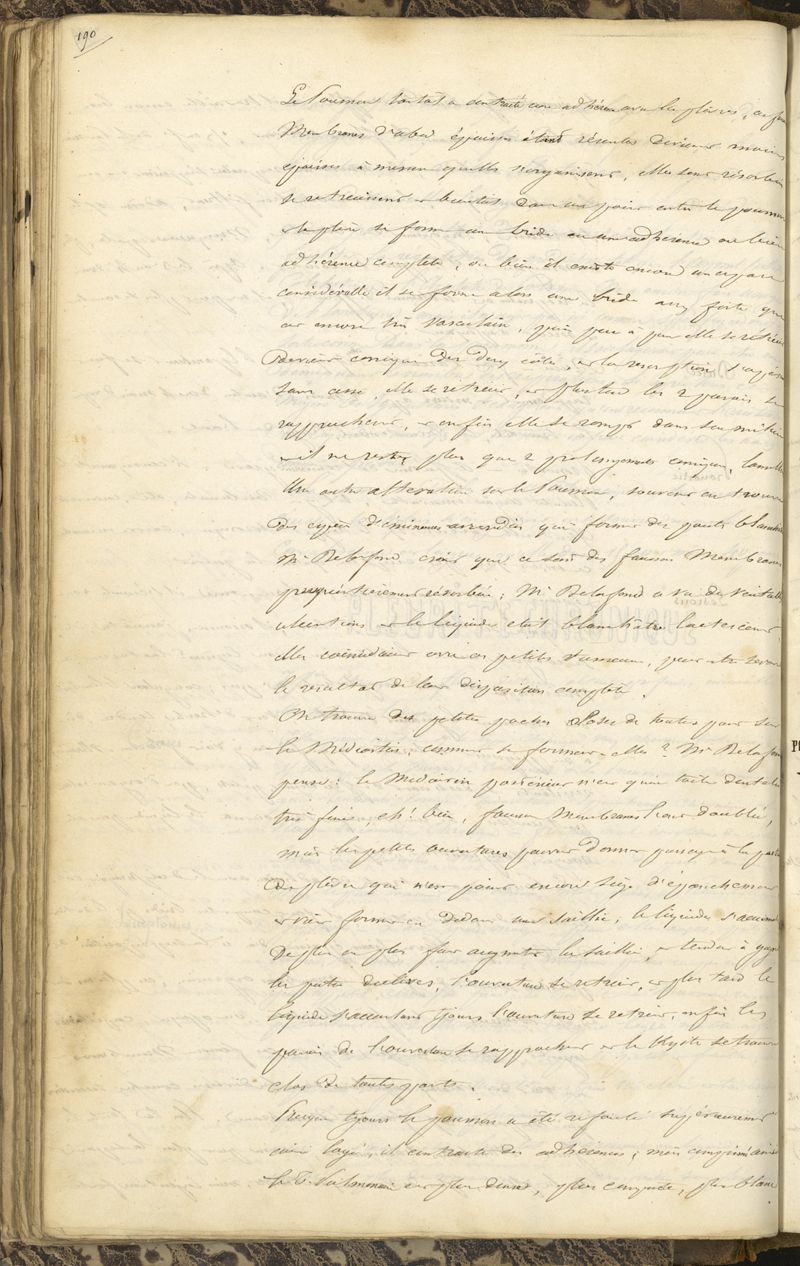 190
Le Poumon tantôt a contracté une adhérence avec les plèvres, ces fausses
Membranes d'abord épaisses étant récentes deviennent moins
épaisses à mesure qu'elles s'organisent, elles sont résorbées
se retrécissent et bientôt dans un point entre le poumon
et la plèvre se forme une bride ou une adhérence ou bien
adhérence complète, ou bien il existe encore un espace
considérable il se forme alors une bride assez forte qui
est encore très vasculaire, puis peu à peu elle se rétrécit
devient conique des deux côtés, et la résorption s'opérant
sans cesse, elle se retrécit, et plus tard les 2 parois se
rapprochent, et enfin elle se rompt dans son milieu
et il ne reste plus que 2 prolongements coniques,
Une autre altération sur le Poumon, souvent on trouve
des espèces d'éminences arrondies qui forment des points blanchâtres
Mr Delafond croit que ce sont des fausses Membranes
résorbées; Mr Delafond a vu de véritables
ulcérations et le liquide était blanchâtre lactescent
elles coïncidaient avec ces petites tumeurs, peut être
le résultat de leur disparition complète.
On trouve des petites poches closes de toutes parts sur
le Médiastin, comment se forment-elles? Mr Delafond
pense: le Médiastin postérieur n'est qu'une toile dentelée
très fine, eh! bien, fausses Membranes l'ont doublé,
mais les petites ouvertures peuvent donner passage à la partie
de plèvre qui n'est point encore siège d'épanchement
et vient former en dedans une saillie, le liquide s'accumule
de plus en plus fait augmenter la saillie, et tendant à gagner
les parties déclives, l'ouverture se retrécit, et plus tard le
liquide s'accumulant tjours l'ouverture se retrécit, enfin les
parois de l'ouverture se rapprochent et le Kyste se trouve
clos de toutes parts.
Presque tjours le poumon a été refoulé supérieurement
ainsi logé, il contracte des adhérences; mais comprimé ainsi
le T. Pulmonaire est plus dense, plus compacte, plus blanc